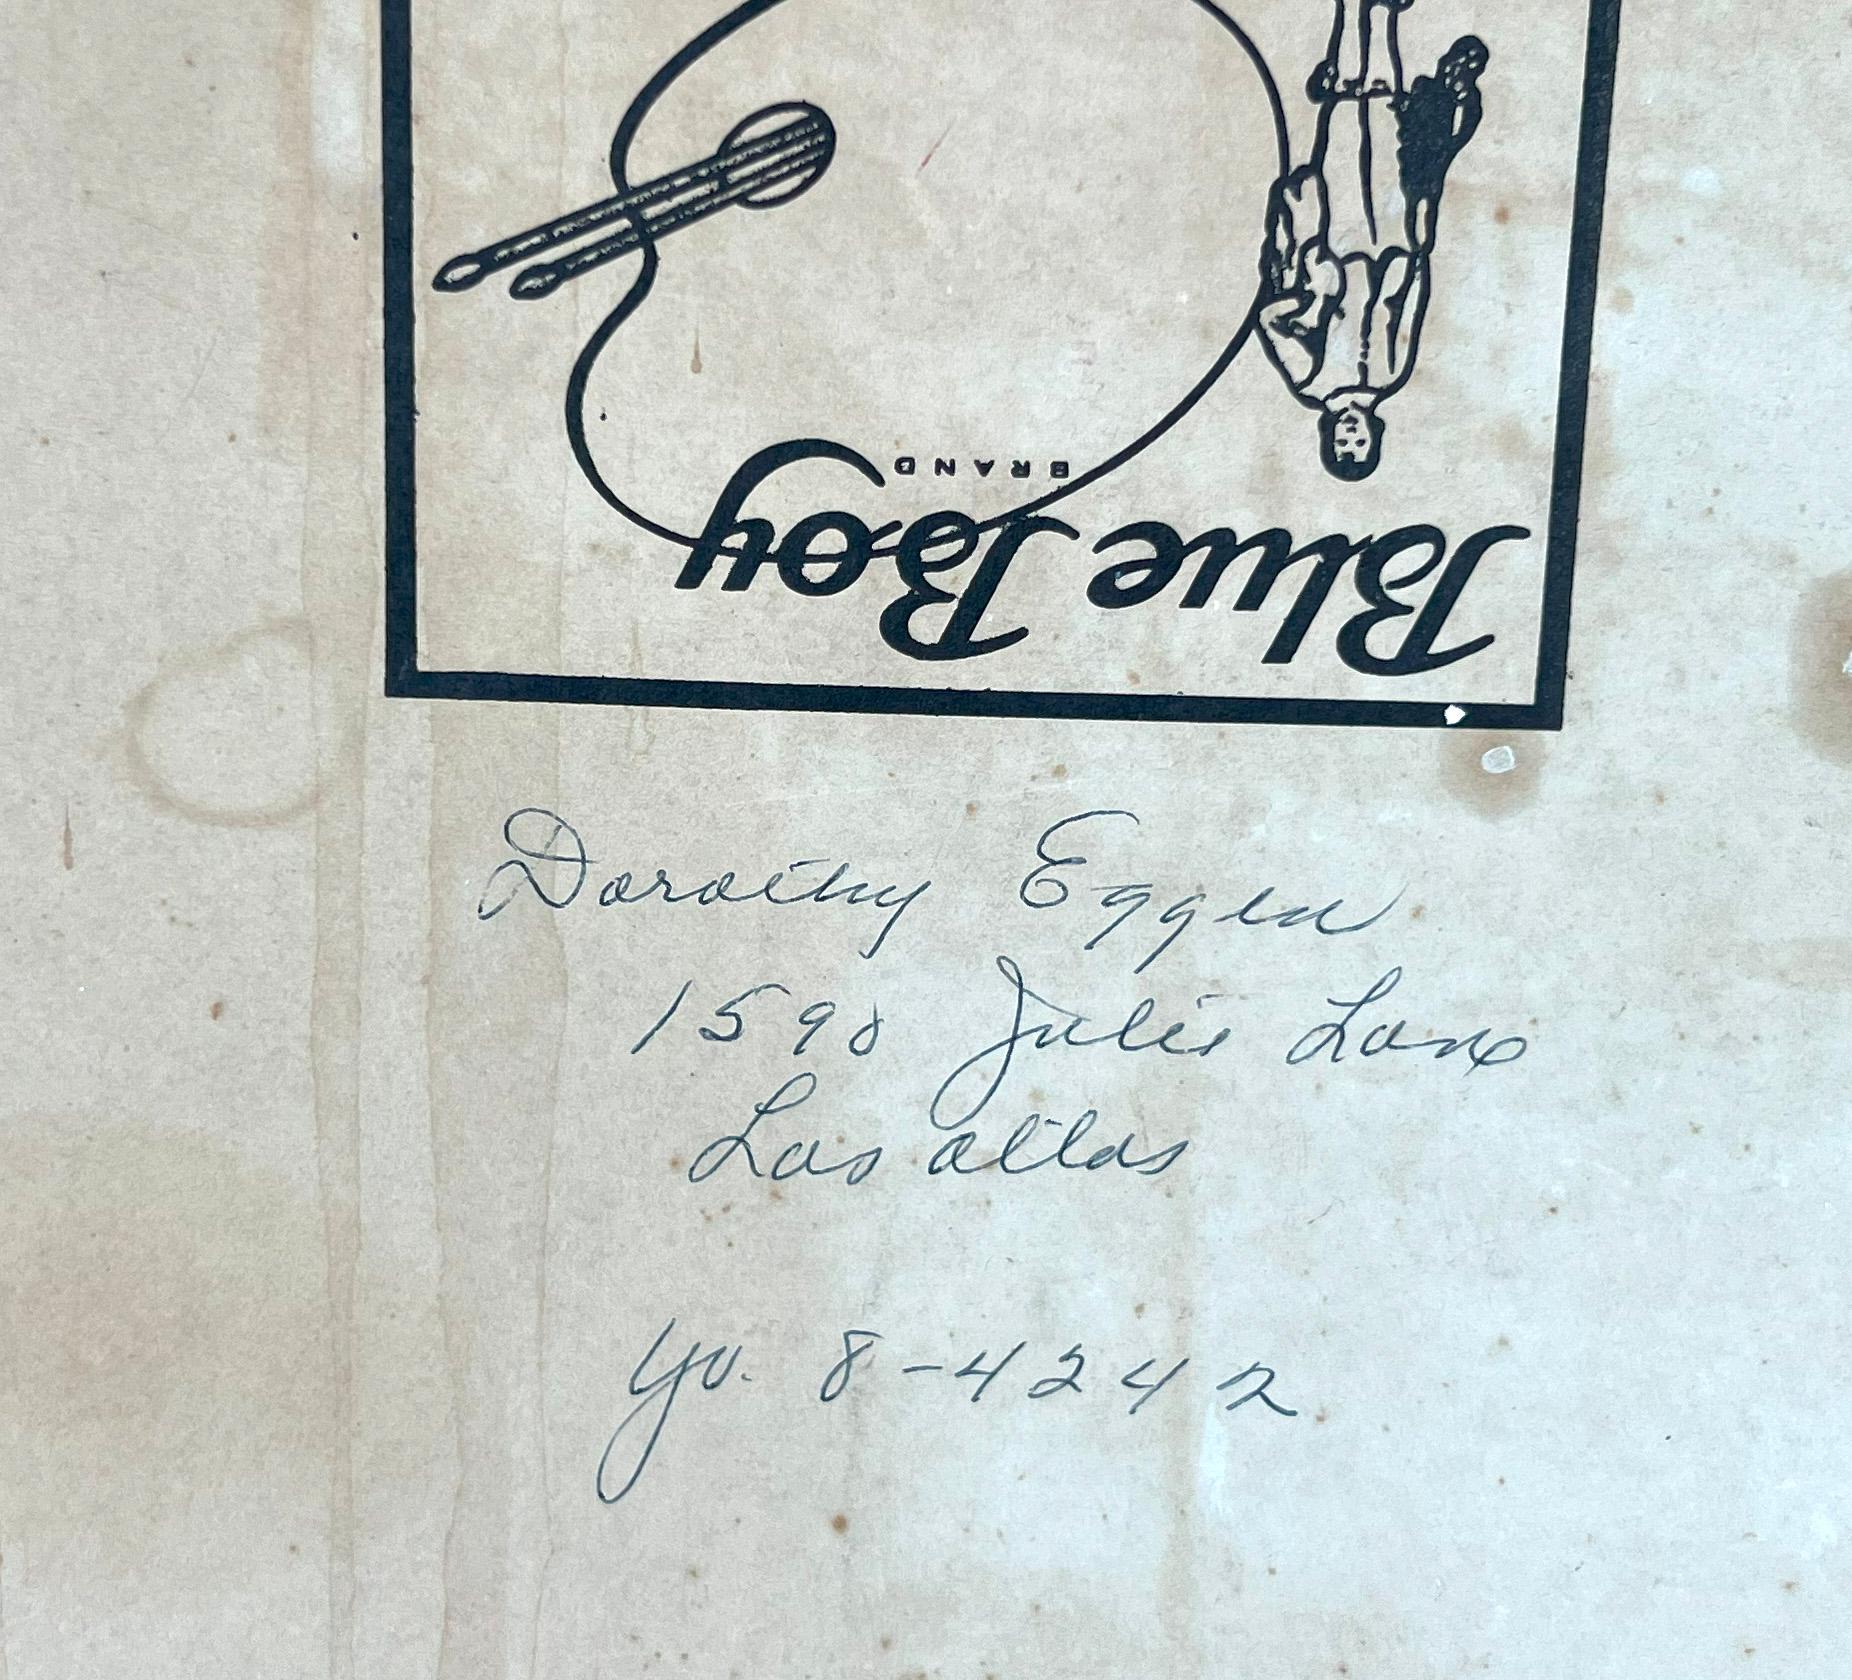 Blue Boy
BRAND
Dorothy Eggen
1598 Julie Lane
Los altos
Yo. 8-4242